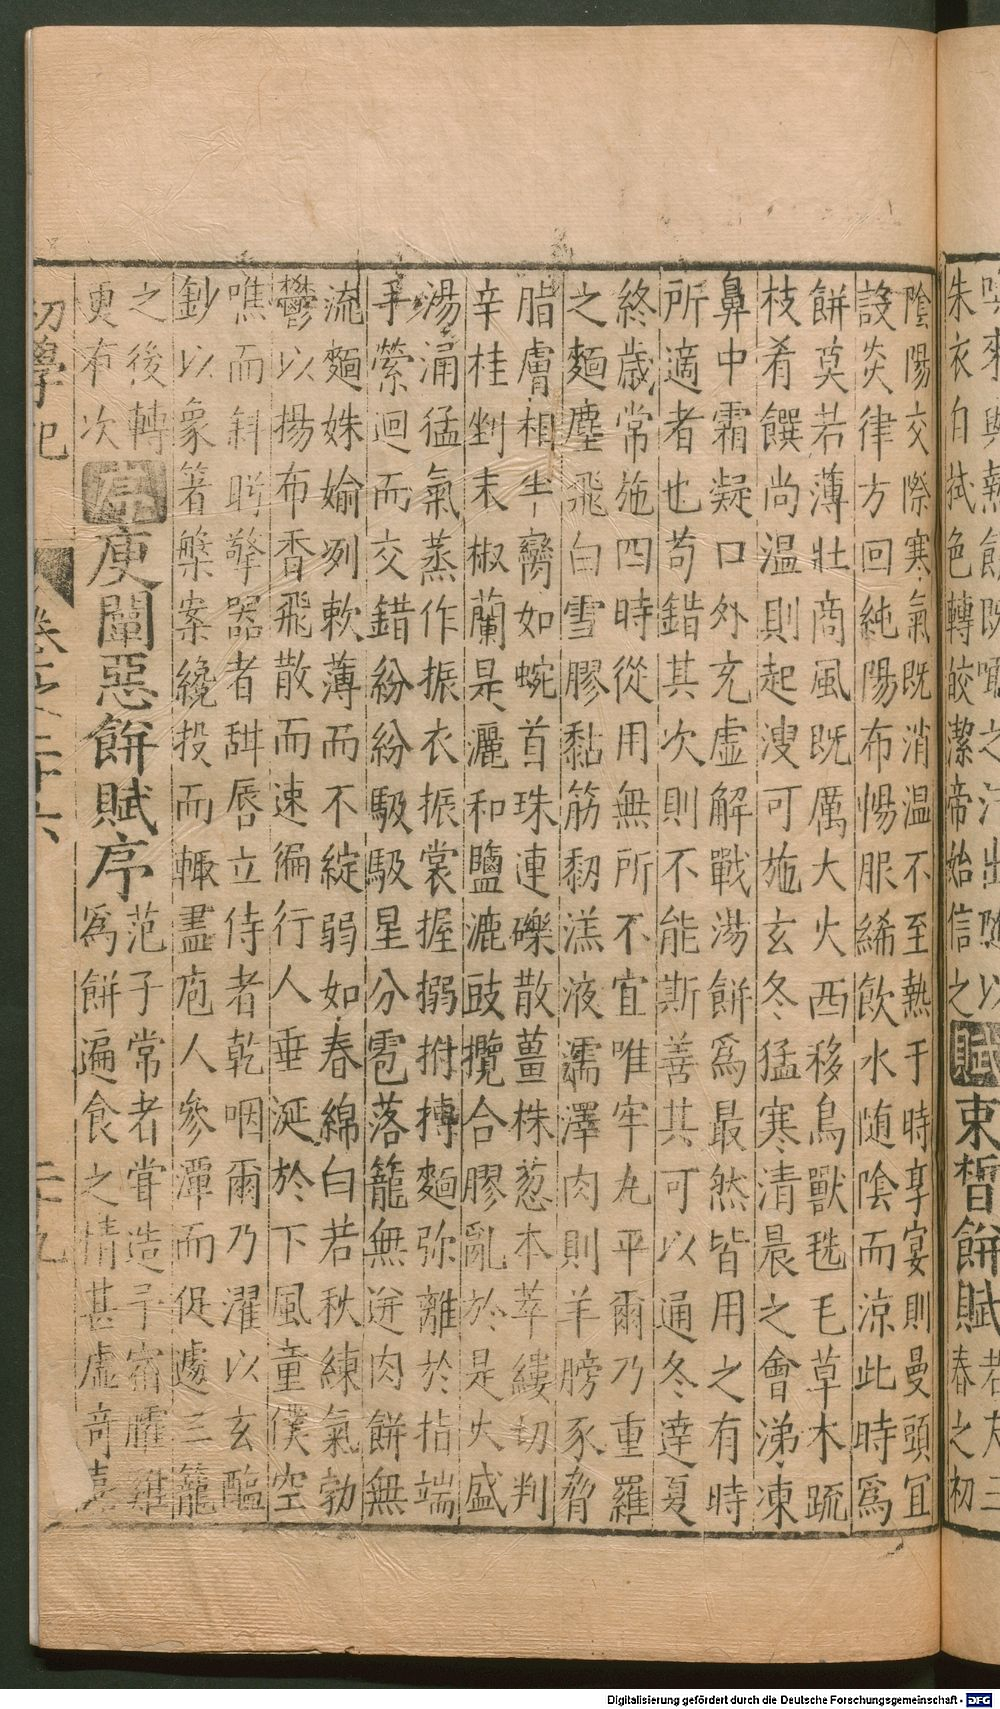 朱衣自拭色轉皎潔帝始信之
賦
束皙餅賦
若夫三
春之初
陰陽交際寒氣既消温不至熱于時享宴則曼頭宜
設炎律方回純陽布惕服絺飲水随陰而涼此時為
餅莫若薄壮商風既厲大火西移鳥獸毨毛草木疏
枝肴饌尚温則起溲可施玄冬猛寒清晨之會涕凍
鼻中霜凝口外充虚解戰湯餅為最然皆用之有時
所適者也苟錯其次則不能斯善其可以通冬達夏
終歳常施四時從用無所不宜唯牢丸乎爾乃重羅
之麵塵飛白雪膠黏筋䵑液濡澤肉則羊膀豕脅
脂膚相半臠如蜿首珠連礫散薑株葱本萃縷切判
辛桂剉末椒蘭是灑和鹽漉豉攬合膠亂於是火盛
湯涌猛氣蒸作振衣振裳握搦拊摶麵弥離於指端
手縈迴而交錯紛紛馺馺星分雹落籠無迸肉餅無
流麵姝媮冽敕薄而不綻弱如春綿白若秋練氣勃
鬱以揚布香飛散而速徧行人垂涎於下風童僕空
噍而斜眄擎器者䑛唇立侍者乾咽爾乃濯以玄醢
鈔以象箸槃案纔投而輒盡庖人參潭而促遽三籠
之後轉
更有次
序
庾闡惡餅賦序
范子常者嘗造予宿臛雞
為餅遍食之情甚虚奇嘉
初學記 卷之二十六 二十九
Digitalisierung gefördert durch die Deutsche Forschungsgemeinschaft - DFG